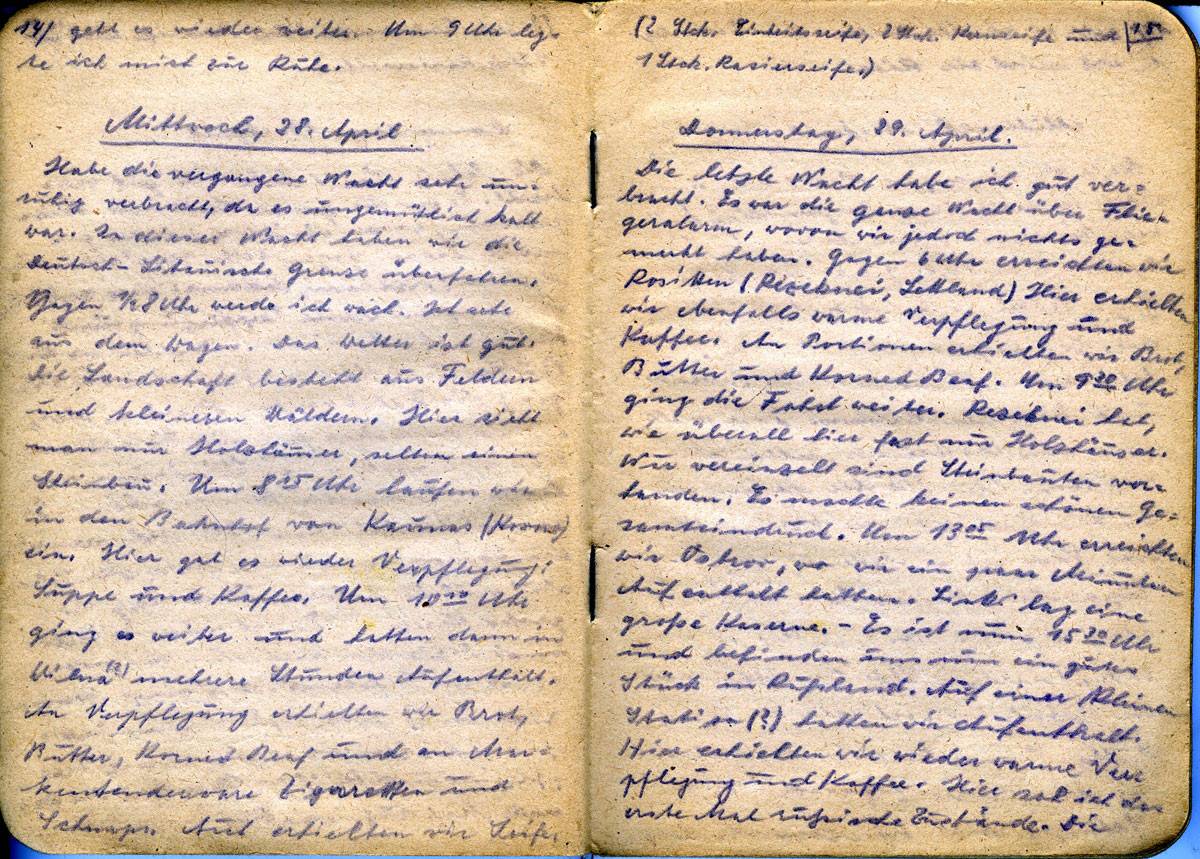 14/ geht es wieder weiter. Um 9 Uhr leg-
te ich mich zur Ruhe.
Mittwoch, 28. April
Habe die vergangene Nacht sehr un-
ruhig verbracht, da es ungemütlich kalt
war. In dieser Nacht haben wir die
Deutsch-Litauische Grenze überfahren.
Gegen ½8 Uhr werde ich wach. Ich sehe
aus dem Wagen. Das Wetter ist gut.
Die Landschaft besteht aus Feldern
und kleineren Wäldern. Hier sieht
man nur Holzhäuser, selten einen
Steinbau. Um 8 25 Uhr laufen wir
in den Bahnhof von Kaunas (Kowno)
ein. Hier gab es wieder Verpflegung:
Suppe und Kaffee. Um 10 Uhr
ging es weiter und hatten dann in
Wilna (?) mehrere Stunden Aufenthalt.
An Verpflegung erhielten wir Brot,
Butter, Korned Beaf und an Mar-
kentenderware Zigaretten und
Schnaps. Auch erhielten wir Seife.
(2 Stck. Einheitsseife, 2 Stck. Kernseife und |15
1 Stck. Rasierseife.)
Donnerstag, 29. April.
Die letzte Nacht habe ich gut ver=
bracht. Es war die ganze Nacht über Flie-
geralarm, wovon wir jedoch nichts ge-
merkt haben. Gegen 6 Uhr erreichten wir
Rositten (Reseknei, Lettland) Hier erhielten
wir ebenfalls warme Verpflegung und
Kaffee. An Portionen erhielten wir Brot,
Butter und Korned Beaf. Um 9 30 Uhr
ging die Fahrt weiter. Reseknei hat,
wie überall hier fast nur Holzhäuser.
Nur vereinzelt sind Steinbauten vor-
handen. Es machte keinen schönen Ge-
samteindruck. Um 13 05 Uhr erreichten
wir Ostrow, wo wir ein paar Minuten
Aufenthalt hatten. Links lag eine
große Kaserne. - Es ist nun 15 30 Uhr
und befinden uns nun ein gutes
Stück in Rußland. Auf einer kleinen
Station (?) hatten wir Aufenthalt.
Hier erhielten wir wieder warme Ver=
pflegung und Kaffee. Hier sah ich das
erste Mal russische Zustände. Die